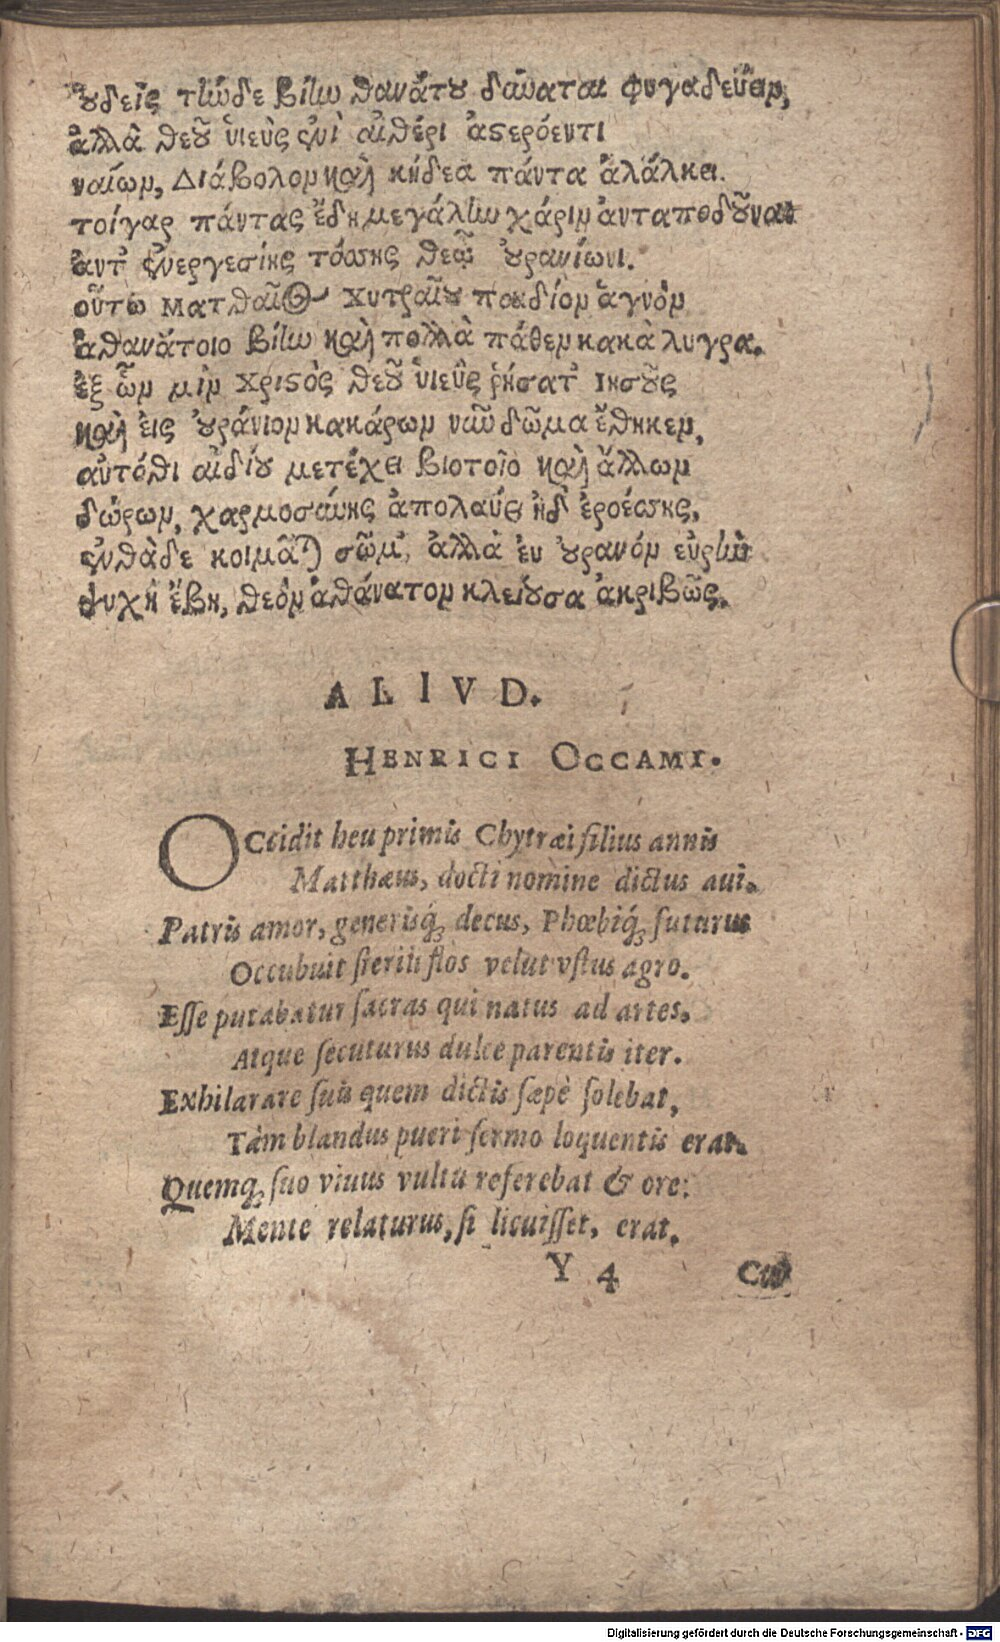 οὐδεὶς τήνδε βίην θανάτου δύναται φυγαδεύειν,
ἀλλὰ θεοῦ ὑιεὺς ἐνὶ αἰθέρι ἀστερόεντι
ναίων, Διάβολον καὶ κήδεα πάντα ἀλάλκει.
τοίγαρ πάντας ἔδη μεγάλην χάριν ἀνταποδοῦναι
ἀντ' ἐνεργεσίης τόσης θεῷ οὐρανίωνι.
οὕτω ματθαῖος χυτραίου παιδίον ἁγνὸν
ἀθανάτοιο βίην καὶ πολλὰ πάθεν κακὰ λυγρα.
ἐξ ὧν μὶν χριστὸς θεοῦ ὑιεὺς ῥήσατ' ιησοῦς
καὶ εἰς οὐράνιον κακάρων νῦν δῶμα ἔθηκεν,
αὐτόθι αἰδίου μετέχει βιοτοῖο καὶ ἄλλων
δώρων, χαρμοσύνης ἀπολαύει ἠδ' ἐροέσσης,
ἐνθάδε κοιμᾶται σῶμ', ἀλλὰ ἐυ οὐρανόν εὐρὺν
ψυχὴ ἔβη, θεὸν ἀθάνατον κλείουσα ἀκριβῶς.
ALIVD.
HENRICI OCCAMI.
OCcidit heu primis Chytræi filius annis
Matthæus, docti nomine dictus avi.
Patris amor, generisq́; decus, Phœbiq́; futurus
Occubuit sterili flos velut vstus agro.
Esse putabatur sacras qui natus ad artes,
Atque secuturus dulce parentis iter.
Exhilarare suis quem dictis sæpè solebat,
Tàm blandus pueri sermo loquentis erat.
Quemq; suo viuus vultu referebat & ore:
Mente relaturus, si licuisset, erat.
Y 4
Digitalisierung gefördert durch die Deutsche Forschungsgemeinschaft - DFG